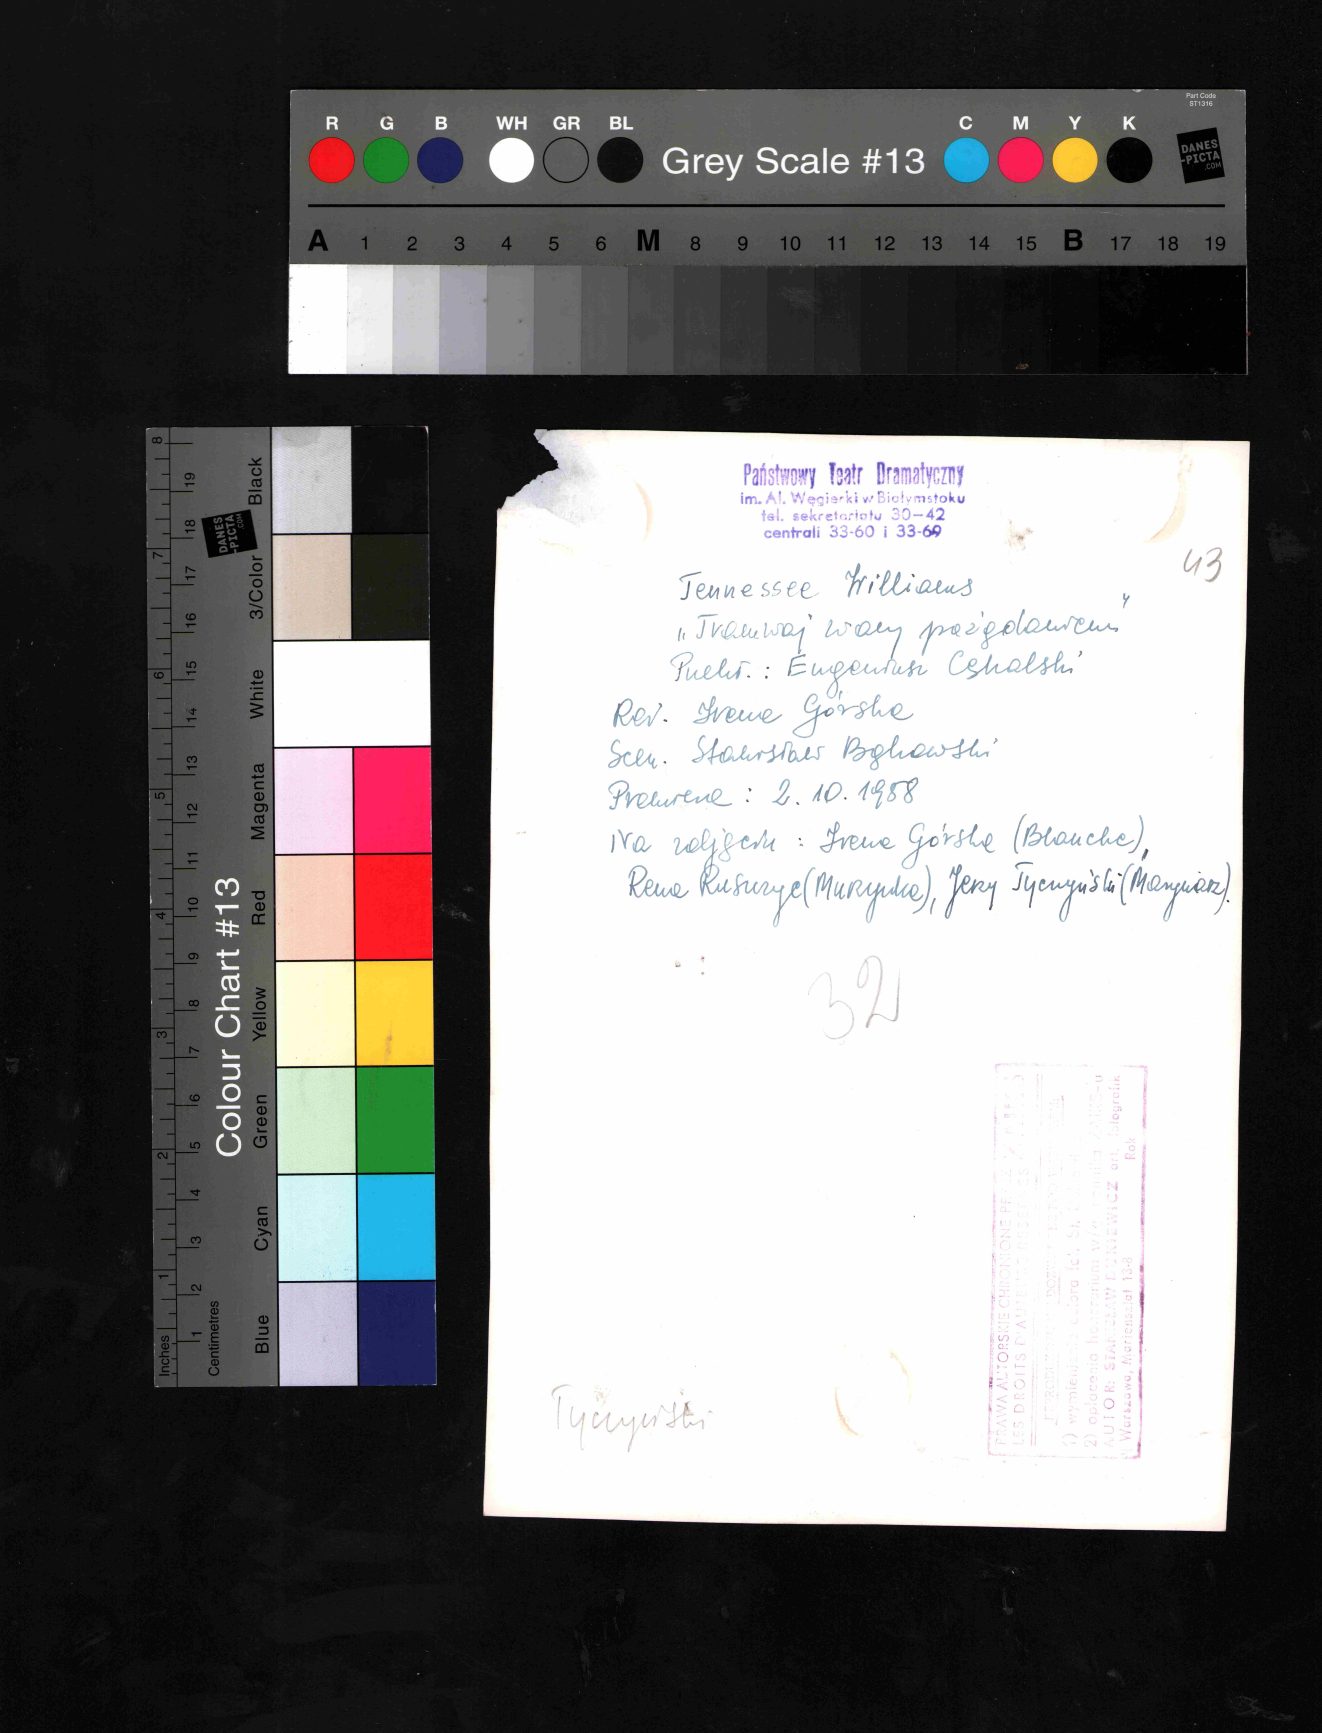 Part Code
ST1316
R G B WH GR BL Grey Scale #13 C M Y K
DANES
-PICTA
.COM
A 1 2 3 4 5 6 M 8 9 10 11 12 13 14 15 B 17 18 19
Colour Chart #13
Inches 1 2 3 4 5 6 7 8
Centimetres 1 2 3 4 5 6 7 8 9 10 11 12 13 14 15 16 17 18 19
Blue Cyan Green Yellow Red Magenta White 3/Color Black
DANES
-PICTA
.COM
Państwowy Teatr Dramatyczny
im. Al. Węgierki w Białymstoku
tel. sekretariatu 30-42
centrali 33-60 i 33-69
43
Tennessee Williams
„Tramwaj zwany pożądaniem"
Przekł.: Eugeniusz Cękalski
Reż. Irena Górska
Scen. Stanisław Bąkowski
Premiera: 2.10.1958
Na zdjęciu: Irena Górska (Blanche),
Rena (Murzynka), Jerzy Tyczyński (Marynarz).
32
Tyczyński
PRAWA AUTORSKIE CHRONIONE
LES DROITS D'AUTEURS
1) wymienienia autora
2) opłacenia honorarium
AUTOR: STANISŁAW art. fotografik
Warszawa, Mariensztat 13-8 Rok